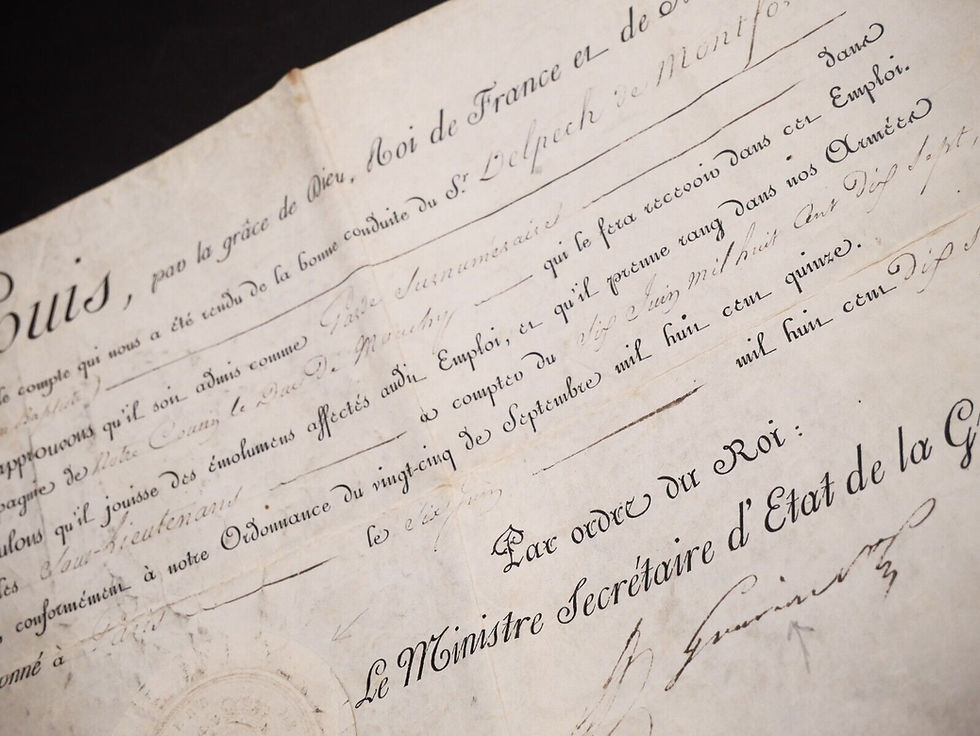 Louis, par la grâce de Dieu, Roi de France et de
le compte qui nous a été rendu de la bonne conduite du S.r Delpech de Montfo
Baptiste) dans
approuvons qu'il soit admis comme Garde Surnuméraire
pagnie de Notre Cousin le Duc De Mouchy qui le fera recevoir dans cet Emploi.
ulons qu'il jouisse des émolumens affectés audit Emploi, et qu'il prenne rang dans nos Armées
les Sous-Lieutenans à compter du Six Juin mil huit Cent Dix Sept,
conformément à notre Ordonnance du vingt-cinq de Septembre mil huit cent quinze.
onné à Paris le Six Juin mil huit cent Dix S
Par ordre du Roi :
Le Ministre Secrétaire d'Etat de la G